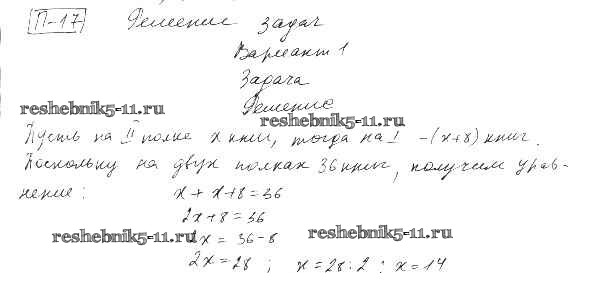 П-17 Решение задач
Вариант 1
Задача
reshebnik5-11.ru
Решение
reshebnik5-11.ru
Пусть на II полке x книг, тогда на I -(x+8) книг.
Поскольку на двух полках 36 книг, получим урав-
нение: x + x+8=36
2x+8=36
reshebnik5-11.ru 2x = 36-8 reshebnik5-11.ru
2x=28 ; x=28:2 ; x=14